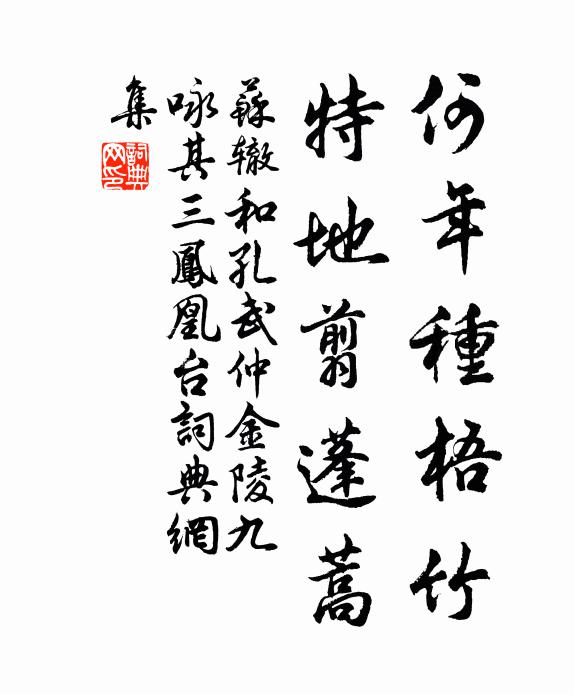 何年種梧竹
特地翦蓬蒿
蘇辙和孔武仲金陵九
咏其三鳳凰台詞典網
集
詞典网印